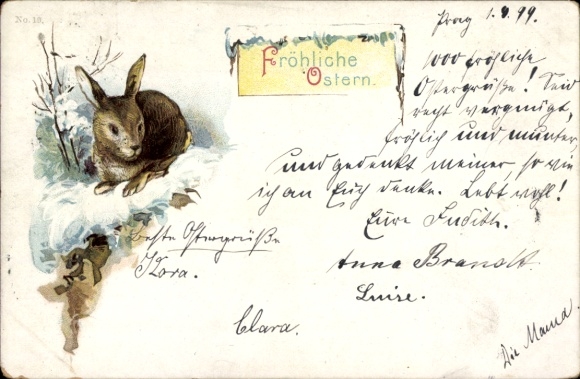 No. 10.
Fröhliche
Ostern.
Prag 1.4.99.
1000 fröhliche
Ostergrüße! Seid
recht vergnügt,
fröhlich und munter,
und gedenkt meiner, so wie
ich an Euch denke. Lebt wohl!
Eure Judith.
Beste Ostergrüße
Kora.
Anna Brandt.
Luise.
Clara.
Die Mama.